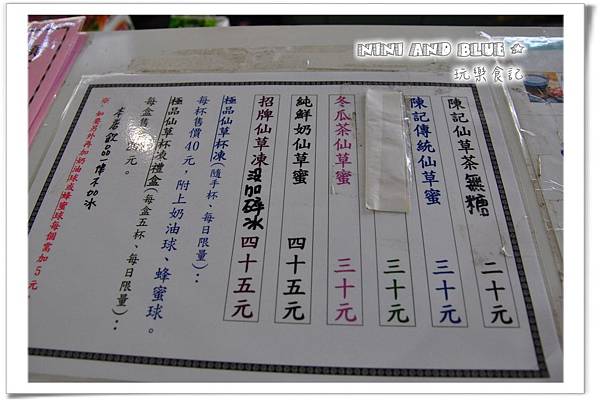 NINI AND BLUE
玩樂食記
陳記仙草茶 無糖 二十元
陳記傳統仙草蜜 三十元
三十元
冬瓜茶仙草蜜 三十元
純鮮奶仙草蜜 四十五元
招牌仙草凍 沒加碎冰 四十五元
極品仙草杯凍(隨手杯、每日限量)：
每杯售價40元，附上奶油球、蜂蜜球。
極品仙草杯凍禮盒(每盒五杯、每日限量)：
每盒售
元。
本舊飲品一律不加冰
※ 如要另外再加奶油球或蜂蜜球每個需加5元